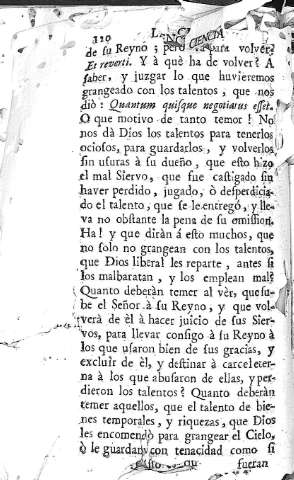 110
de su Reyno; pero para volver?
Et reverti. Y à què ha de volver? A
saber, y juzgar lo que huvieremos
grangeado con los talentos, que nos
diò: Quantum quisque negotiatus esset.
O que motivo de tanto temor! No
nos dà Dios los talentos para tenerlos
ociosos, para guardarlos, y volverlos
sin usuras à su dueño, que esto hizo
el mal Siervo, que fue castigado sin
haver perdido, jugado, ò desperdicia-
do el talento, que se le entregó, y lle-
va no obstante la pena de su omission.
Ha! y que diràn á esto muchos, que
no solo no grangean con los talentos,
que Dios liberal les reparte, antes si
los malbaratan, y los emplean mal?
Quanto deberàn temer al vèr, que su-
be el Señor à su Reyno, y que vol-
verà de èl à hacer juicio de sus Sier-
vos, para llevar consigo à su Reyno à
los que usaron bien de sus gracias, y
excluir de èl, y destinar à carcel eter-
na à los que abusaron de ellas, y per-
dieron los talentos? Quanto deberàn
temer aquellos, que el talento de bie-
nes temporales, y riquezas, que Dios
les encomendò para grangear el Cielo,
ò le guardan con tenacidad como si
fueran